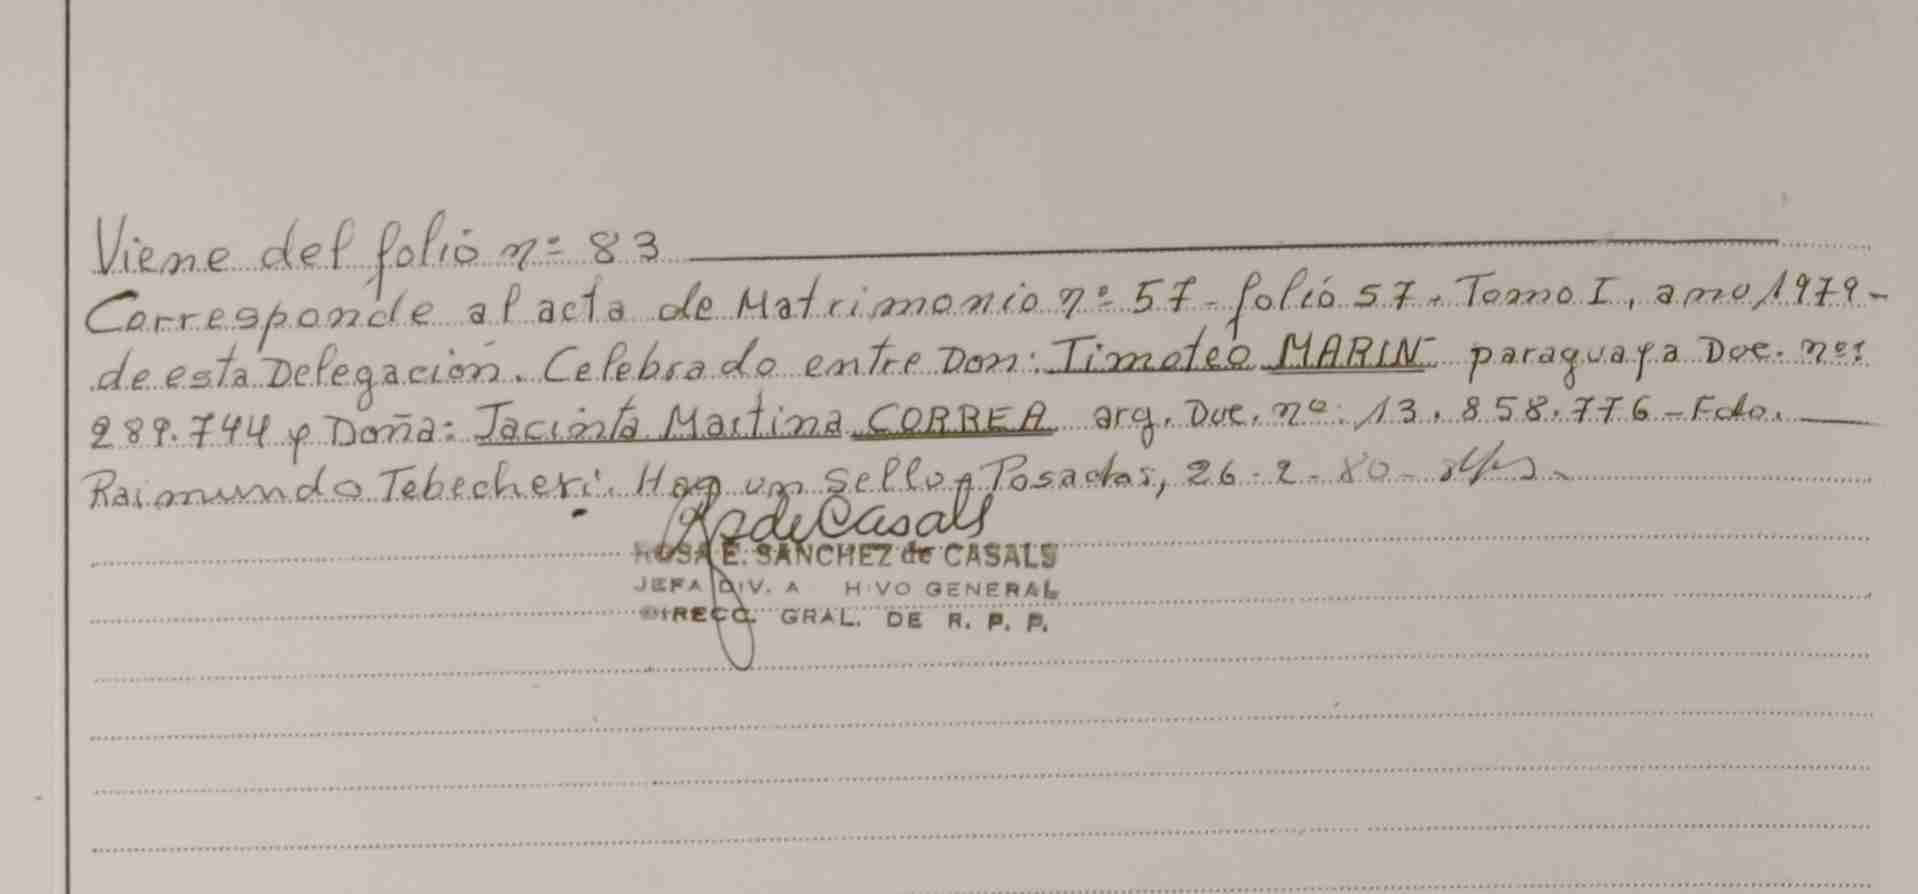 Viene del folio nº 83
Corresponde al acta de Matrimonio nº 57 - folio 57. Tomo I, año 1979 -
de esta Delegación. Celebrado entre Don: Timoteo MARIN paraguaya Doc. nº:
289.744 y Doña: Jacinta Martina CORREA arg. Doc. nº: 13.858.776 - Fdo.
Raimundo Tebecheri. Hay un sello Posadas, 26-2-80 -
RSdeCasals
ROSA E. SANCHEZ de CASALS
JEFA DIV. A HIVO GENERAL
DIRECC. GRAL. DE R. P. P.